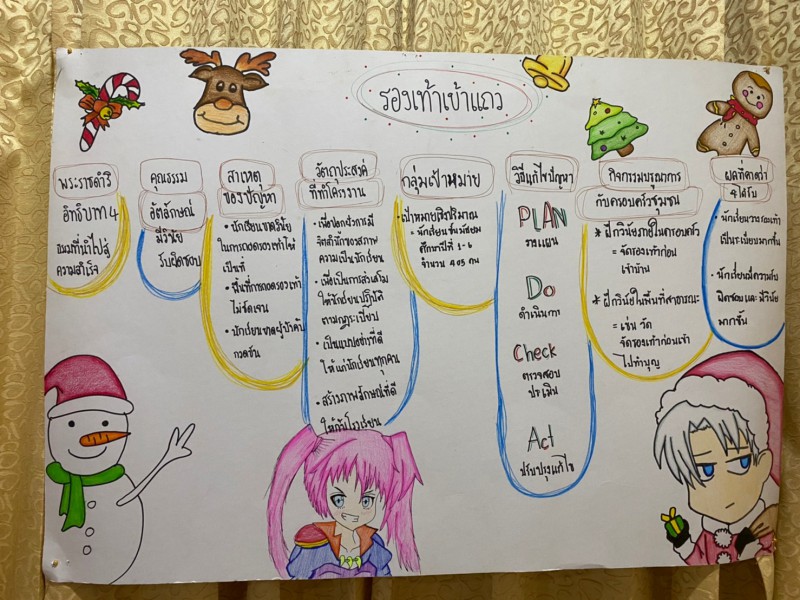 รองเท้าเข้าแถว
พระราชดำริ
อิทธิบาท 4
แนวที่นำไปสู่
ความสำเร็จ
คุณธรรม
อัตลักษณ์
มีวินัย
รับผิดชอบ
สาเหตุ
ของปัญหา
• นักเรียนขาดวินัย
ในการถอดรองเท้าให้
เป็นที่
• พื้นที่การถอดรองเท้า
ไม่ชัดเจน
• นักเรียนขาดผู้บังคับ
กวดขัน
วัตถุประสงค์
ที่ทำโครงงาน
• เพื่อปลูกฝังการมี
จิตสำนึกของสภาพ
ความเป็นนักเรียน
• เพื่อเป็นการส่งเสริม
ให้นักเรียนปฏิบัติ
ตามกฎระเบียบ
• เป็นแบบอย่างที่ดี
ให้แก่นักเรียนทุกคน
• สร้างภาพลักษณ์ที่ดี
ให้กับโรงเรียน
กลุ่มเป้าหมาย
เป้าหมายเชิงปริมาณ
= นักเรียนชั้นมัธยม
ศึกษาปีที่ 1-6
จำนวน 405 คน
วิธีแก้ไขปัญหา
PLAN
วางแผน
Do
ดำเนินการ
Check
ตรวจสอบ
ประเมิน
Act
ปรับปรุงแก้ไข
กิจกรรมบูรณาการ
กับครอบครัวชุมชน
* ฝึกวินัยภายในครอบครัว
= จัดรองเท้าก่อน
เข้าบ้าน
* ฝึกวินัยในพื้นที่สาธารณะ
= เช่น วัด
จัดรองเท้าก่อนเข้า
ไปทำบุญ
ผลที่คาดว่า
จะได้รับ
• นักเรียนวางรองเท้า
เป็นระเบียบมากขึ้น
• นักเรียนมีความรับ
ผิดชอบ และ มีวินัย
มากขึ้น